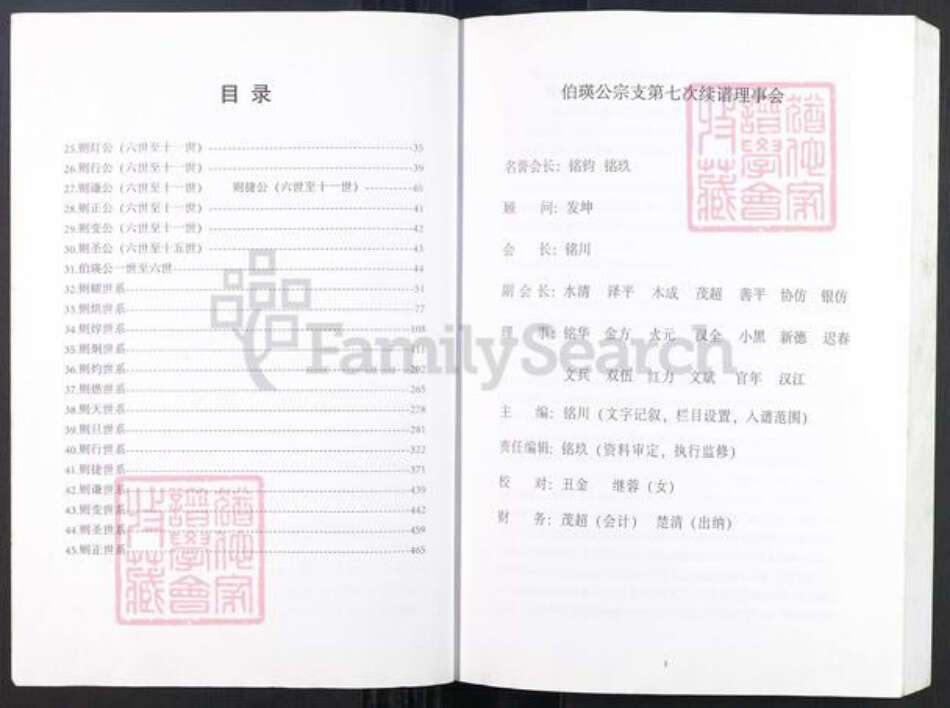 目录
25.则灯公（六世至十一世）35
26.则行公（六世至十一世）39
27.则谦公（六世至十一世） 则捷公（六世至十一世）65
28.则正公（六世至十一世）41
29.则变公（六世至十一世）42
30.则圣公（六世至十五世）43
31.伯瑛公一世至六世44
32.则耀世系51
33.则烘世系77
34.则焞世系108
35.则炯世系
36.则灼世系202
37.则燃世系265
38.则天世系278
39.则旦世系281
40.则行世系322
41.则捷世系371
42.则谦世系439
43.则变世系442
44.则圣世系459
45.则正世系465
伯瑛公宗支第七次续谱理事会
名誉会长：铭钧 铭玖
顾 问：发坤
会 长：铭川
副会长：水清 泽平 木成 茂超 善平 协仿 银仿
理 事：铭华 金方 大元 汉全 小黑 新德 迟春
文兵 双伍 红力 文斌 官年 汉江
主 编：铭川（文字记叙，栏目设置，入谱范围）
责任编辑：铭玖（资料审定，执行监修）
校 对：丑金 继蓉（女）
财 务：茂超（会计） 楚清（出纳）
1
FamilySearch